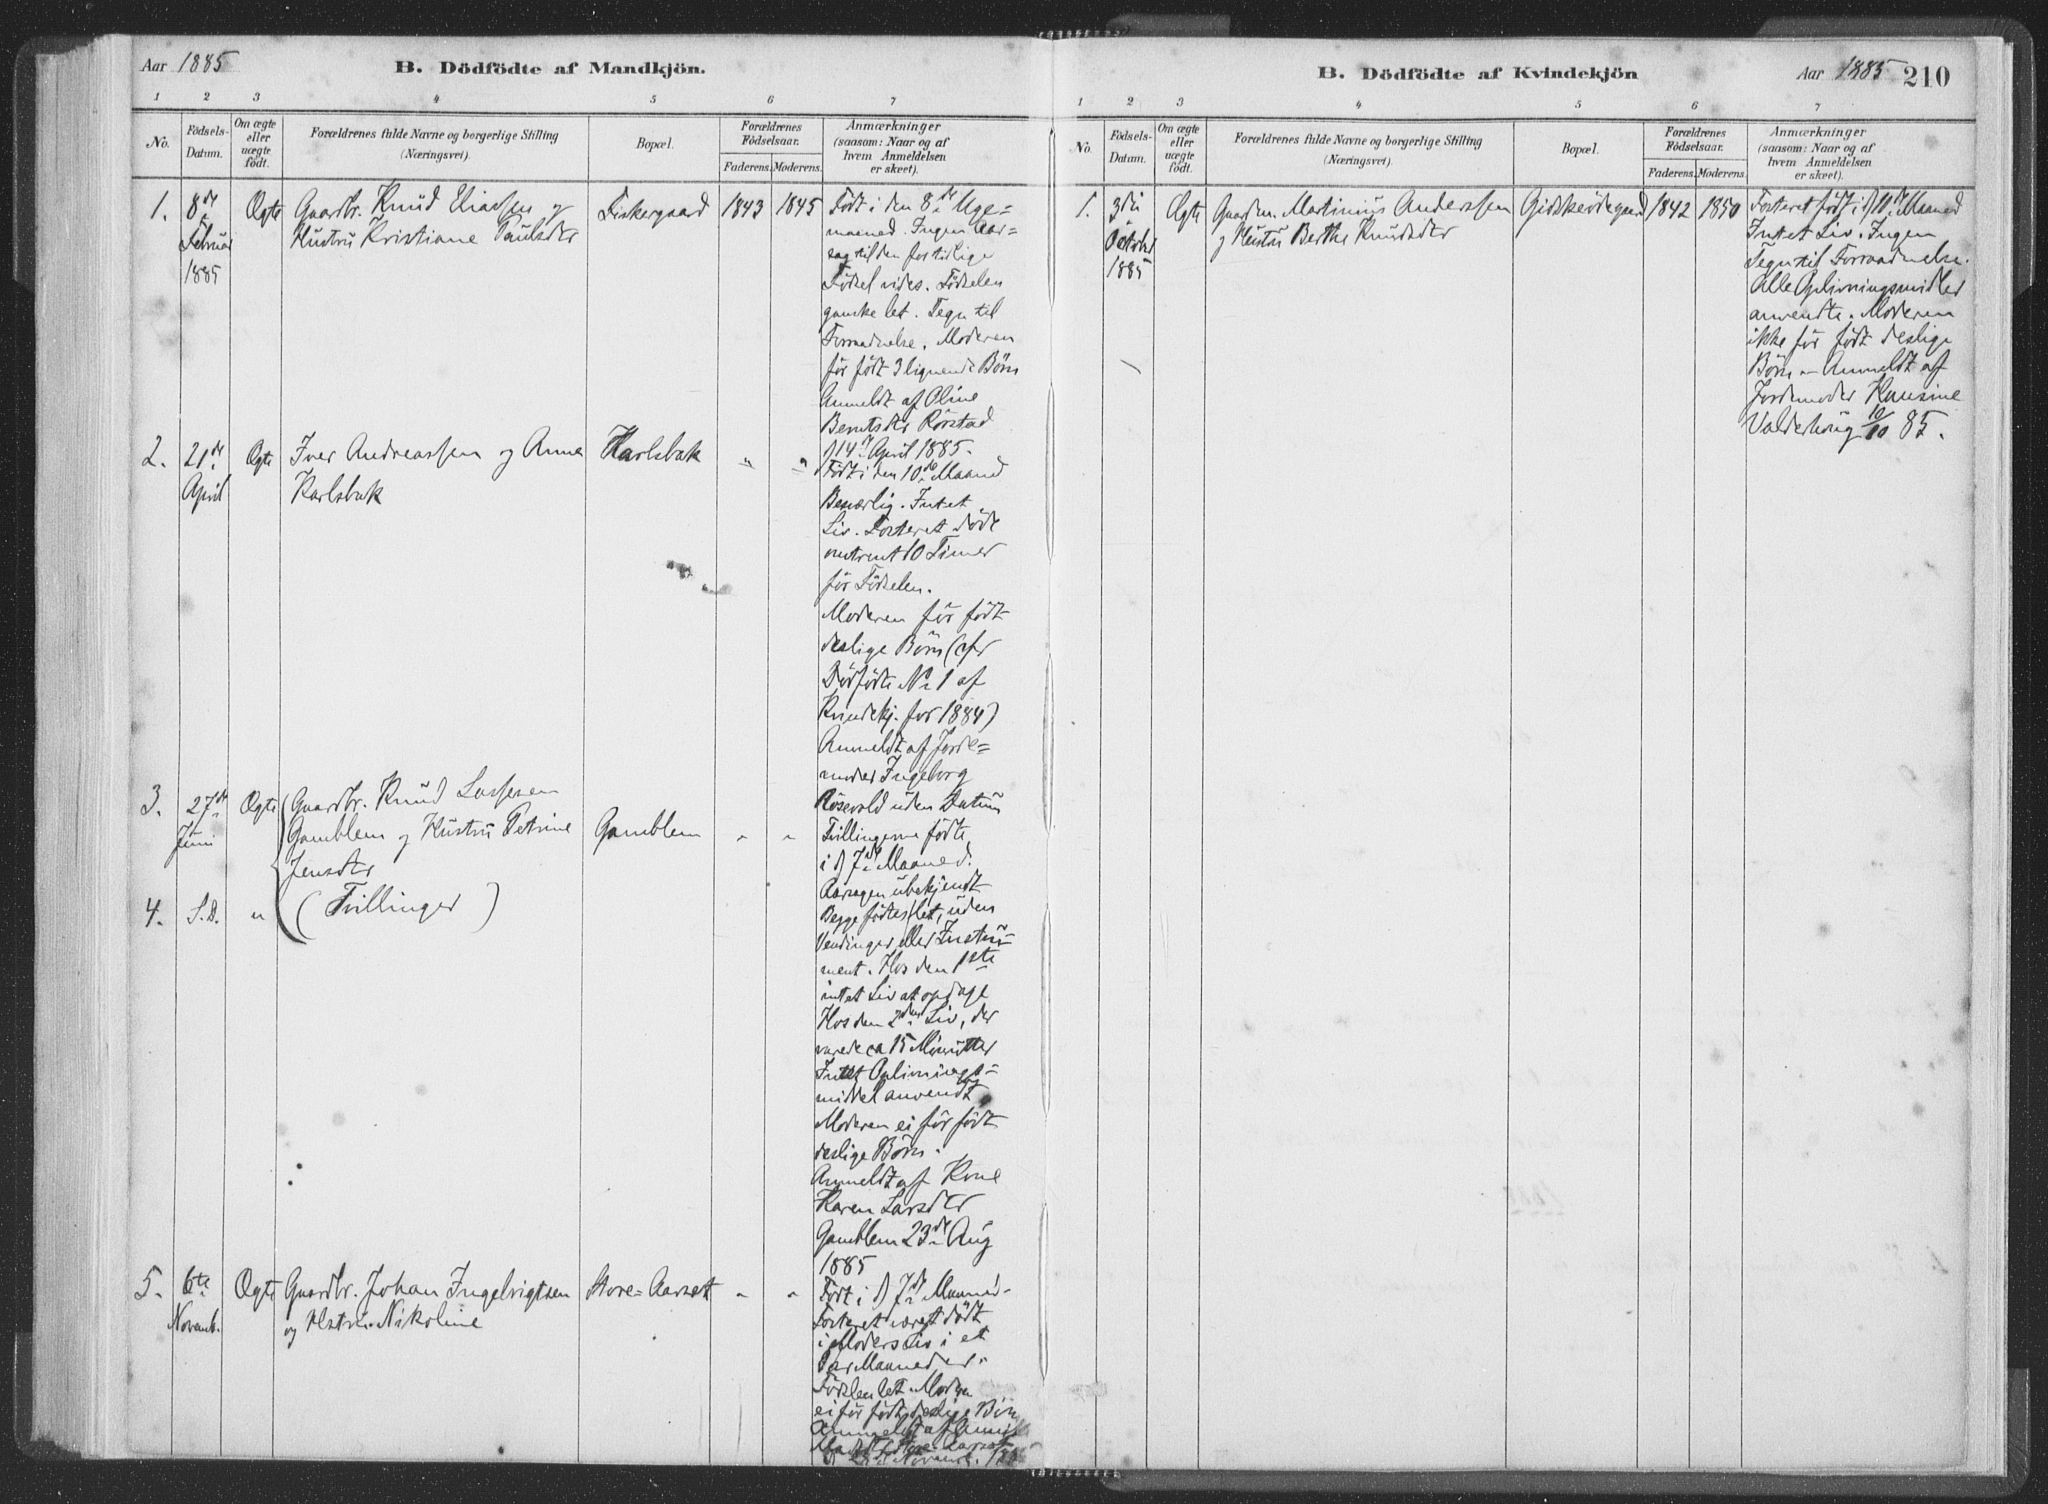 Aar 1885
B. Dödfödte af Mandkjön.
1 2 3 4 5 6 7
No.
Födsels-
Datum.
Om ægte
eller
uægte
födt.
Forældrenes fulde Navne og borgerlige Stilling
(Næringsvei).
Bopæl.
Forældrenes
Födselsaar.
Faderens. Moderens.
Anmærkninger
(saasom: Naar og af
hvem Anmeldelsen
er skeet).
1. 8de Februar 1885 Ægte
Gaardbr. Knud Eliassen og
Hustru Kristiane Paulsdtr
Fiskergaard 1843 1845
Født i den 8de Uge=
maaned. Ingen Aar=
sag til den for tidlige
Födsel vides. Födselen
ganske let. Tegn til
Forraadnelse. Moderen
för födt 3 lignende Börn
Anmeldt af Oline
Berntsdtr Rörstad
14 April 1885.
2. 21de April Ægte
Iver Andreassen og Anne
Karlsbak
Karlsbak " "
Födt i den 10de Maaned
Intet
Liv. Fosteret döde
omtrent 10 Timer
för Födselen.
Moderen för födt
deslige Börn (cfr
Dödfödte No 1 af
Kvindekj. for 1884)
Anmeldt af Jorde=
moder Ingeborg
Rösevold uden Datum
3. 27de Juni Ægte
Gaardbr. Knud Lassesen
Gamblem og Hustru Petrine
Jensdtr
Gamblem " "
4. S.D. "
(Tvillinger)
Tvillingerne födte
i d 7de Maaned.
Aarsagen ubekjendt
Begge födtes let, uden
Vendinger eller Instru=
ment. Hos den 1ste
intet Liv at opdage
Hos den 2den Liv, der
varede ca 15 Minutter
Intet Oplivnings=
middel anvendt
Moderen ei för födt
deslige Börn.
Anmeldt af Kone
Karen Larsdtr
Gamblem 23de Aug
1885
5. 6te Novemb. Ægte
Gaardbr. Johan Ingebrigtsen
og Hstru Nikoline
Store=Aarset " "
Födt i d 7de Maaned.
Fosteret været dödt
i Moders Liv i et
Par Maaneder.
Födslen let. Moderen
ei för födt deslige Börn
Anmeldt af
Store=Aarset
Novemb.
B. Dödfödte af Kvindekjön
Aar 1885 210
1 2 3 4 5 6 7
No.
Födsels-
Datum.
Om ægte
eller
uægte
födt.
Forældrenes fulde Navne og borgerlige Stilling
(Næringsvei).
Bopæl.
Forældrenes
Födselsaar.
Faderens. Moderens.
Anmærkninger
(saasom: Naar og af
hvem Anmeldelsen
er skeet).
1. 3die Oktober 1885 Ægte
Gaardm. Martinius Anderssen
og Hustru Berthe Knudsdtr
Gidskeödegaard 1842 1850
Fosteret födt i d 10de Maaned
Intet Liv. Ingen
Tegn til Forraadnelse.
Alle Oplivningsmidler
anvendte. Moderen
ikke för födt deslige
Börn – Anmeldt af
Jordemoder Knusine
Valderhoug 10/10 85.